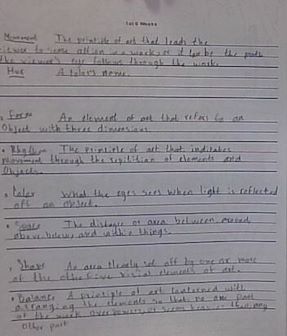 Movement The principle of art that leads the
viewer to some action in a work, or it can be the path
the viewer's eye follows through the work.
Hue A color's name.
• Form An element of art that refers to an
Object with three dimensions.
• Rhythm The principle of art that indicates
movement through the repitition of elements and
Objects.
• Color What the eyes sees when light is reflected
off an object.
• Space The distance or area between, around
above below and within things.
• Shape An area clearly set off by one or more
of the other five visual elements of art.
• Balance A principle of art conterned with
arranging the elements so that no one part
of the work overpowers or seems heavier than any
Other part